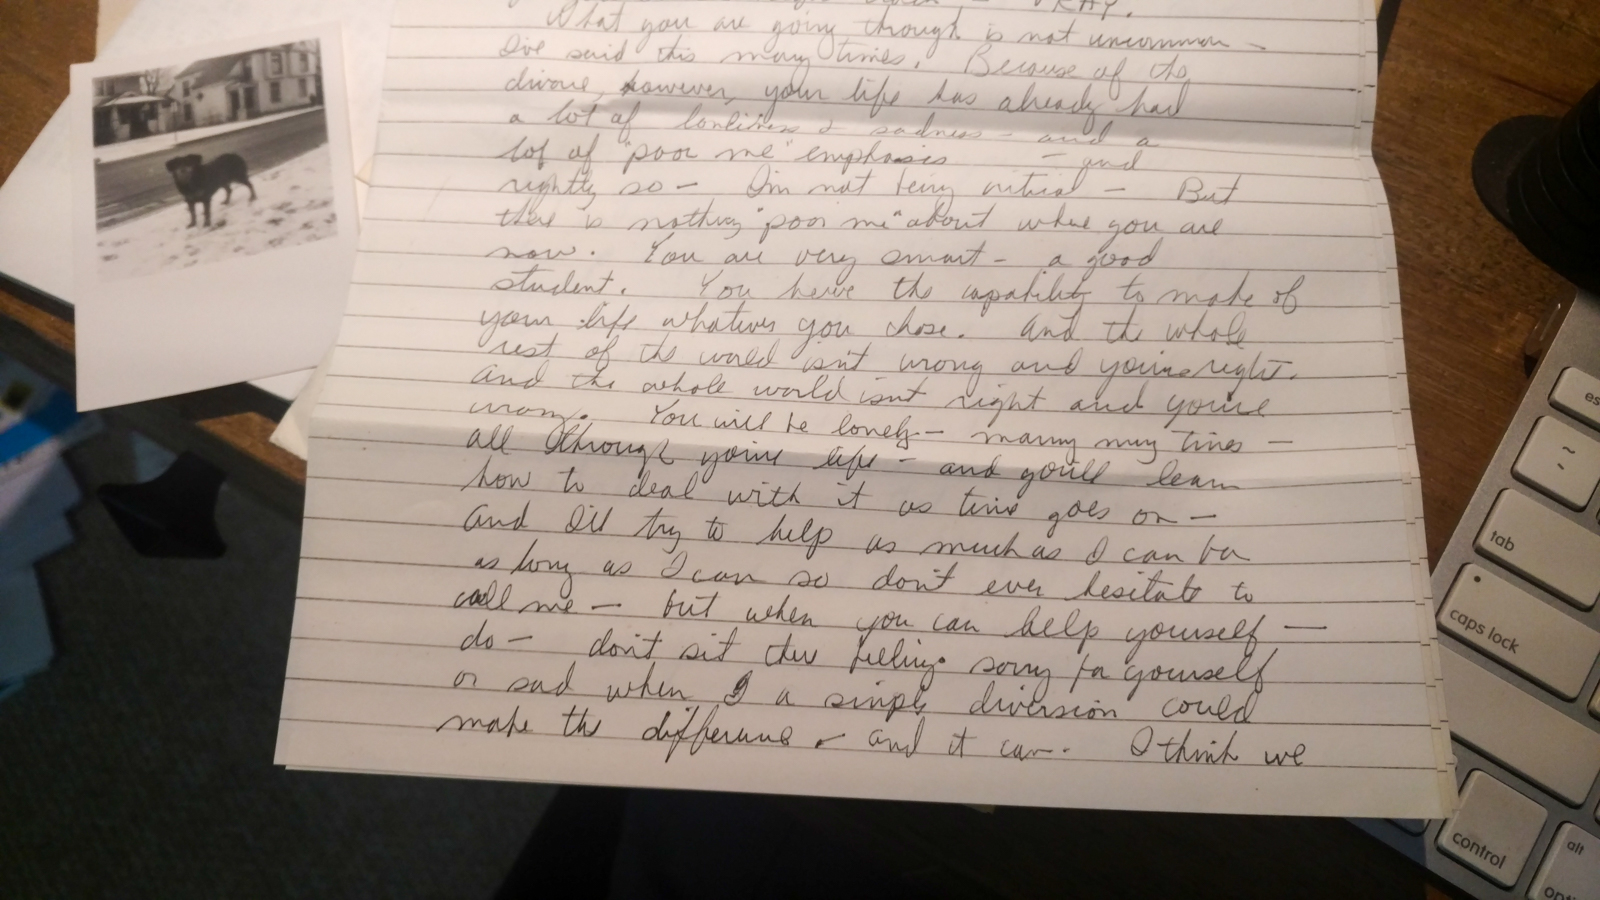 OKAY.
What you are going through is not uncommon —
I've said this many times. Because of the
divorce, however, your life has already had
a lot of lonliness & sadness — and a
lot of "poor me" emphasis — and
rightly so — I'm not being critical — But
there is nothing "poor me" about where you are
now. You are very smart — a good
student. You have the capability to make of
your life whatever you chose. And the whole
rest of the world isn't wrong and you're right.
And the whole world isn't right and you're
wrong. You will be lonely — many many times —
all through your life — and you'll learn
how to deal with it as time goes on —
And I'll try to help as much as I can for
as long as I can so don't ever hesitate to
call me — but when you can help yourself —
do — don't sit there feeling sorry for yourself
or sad when a simple diversion could
make the difference — and it can. I think we
esc
~
`
tab
caps lock
control
alt
opti